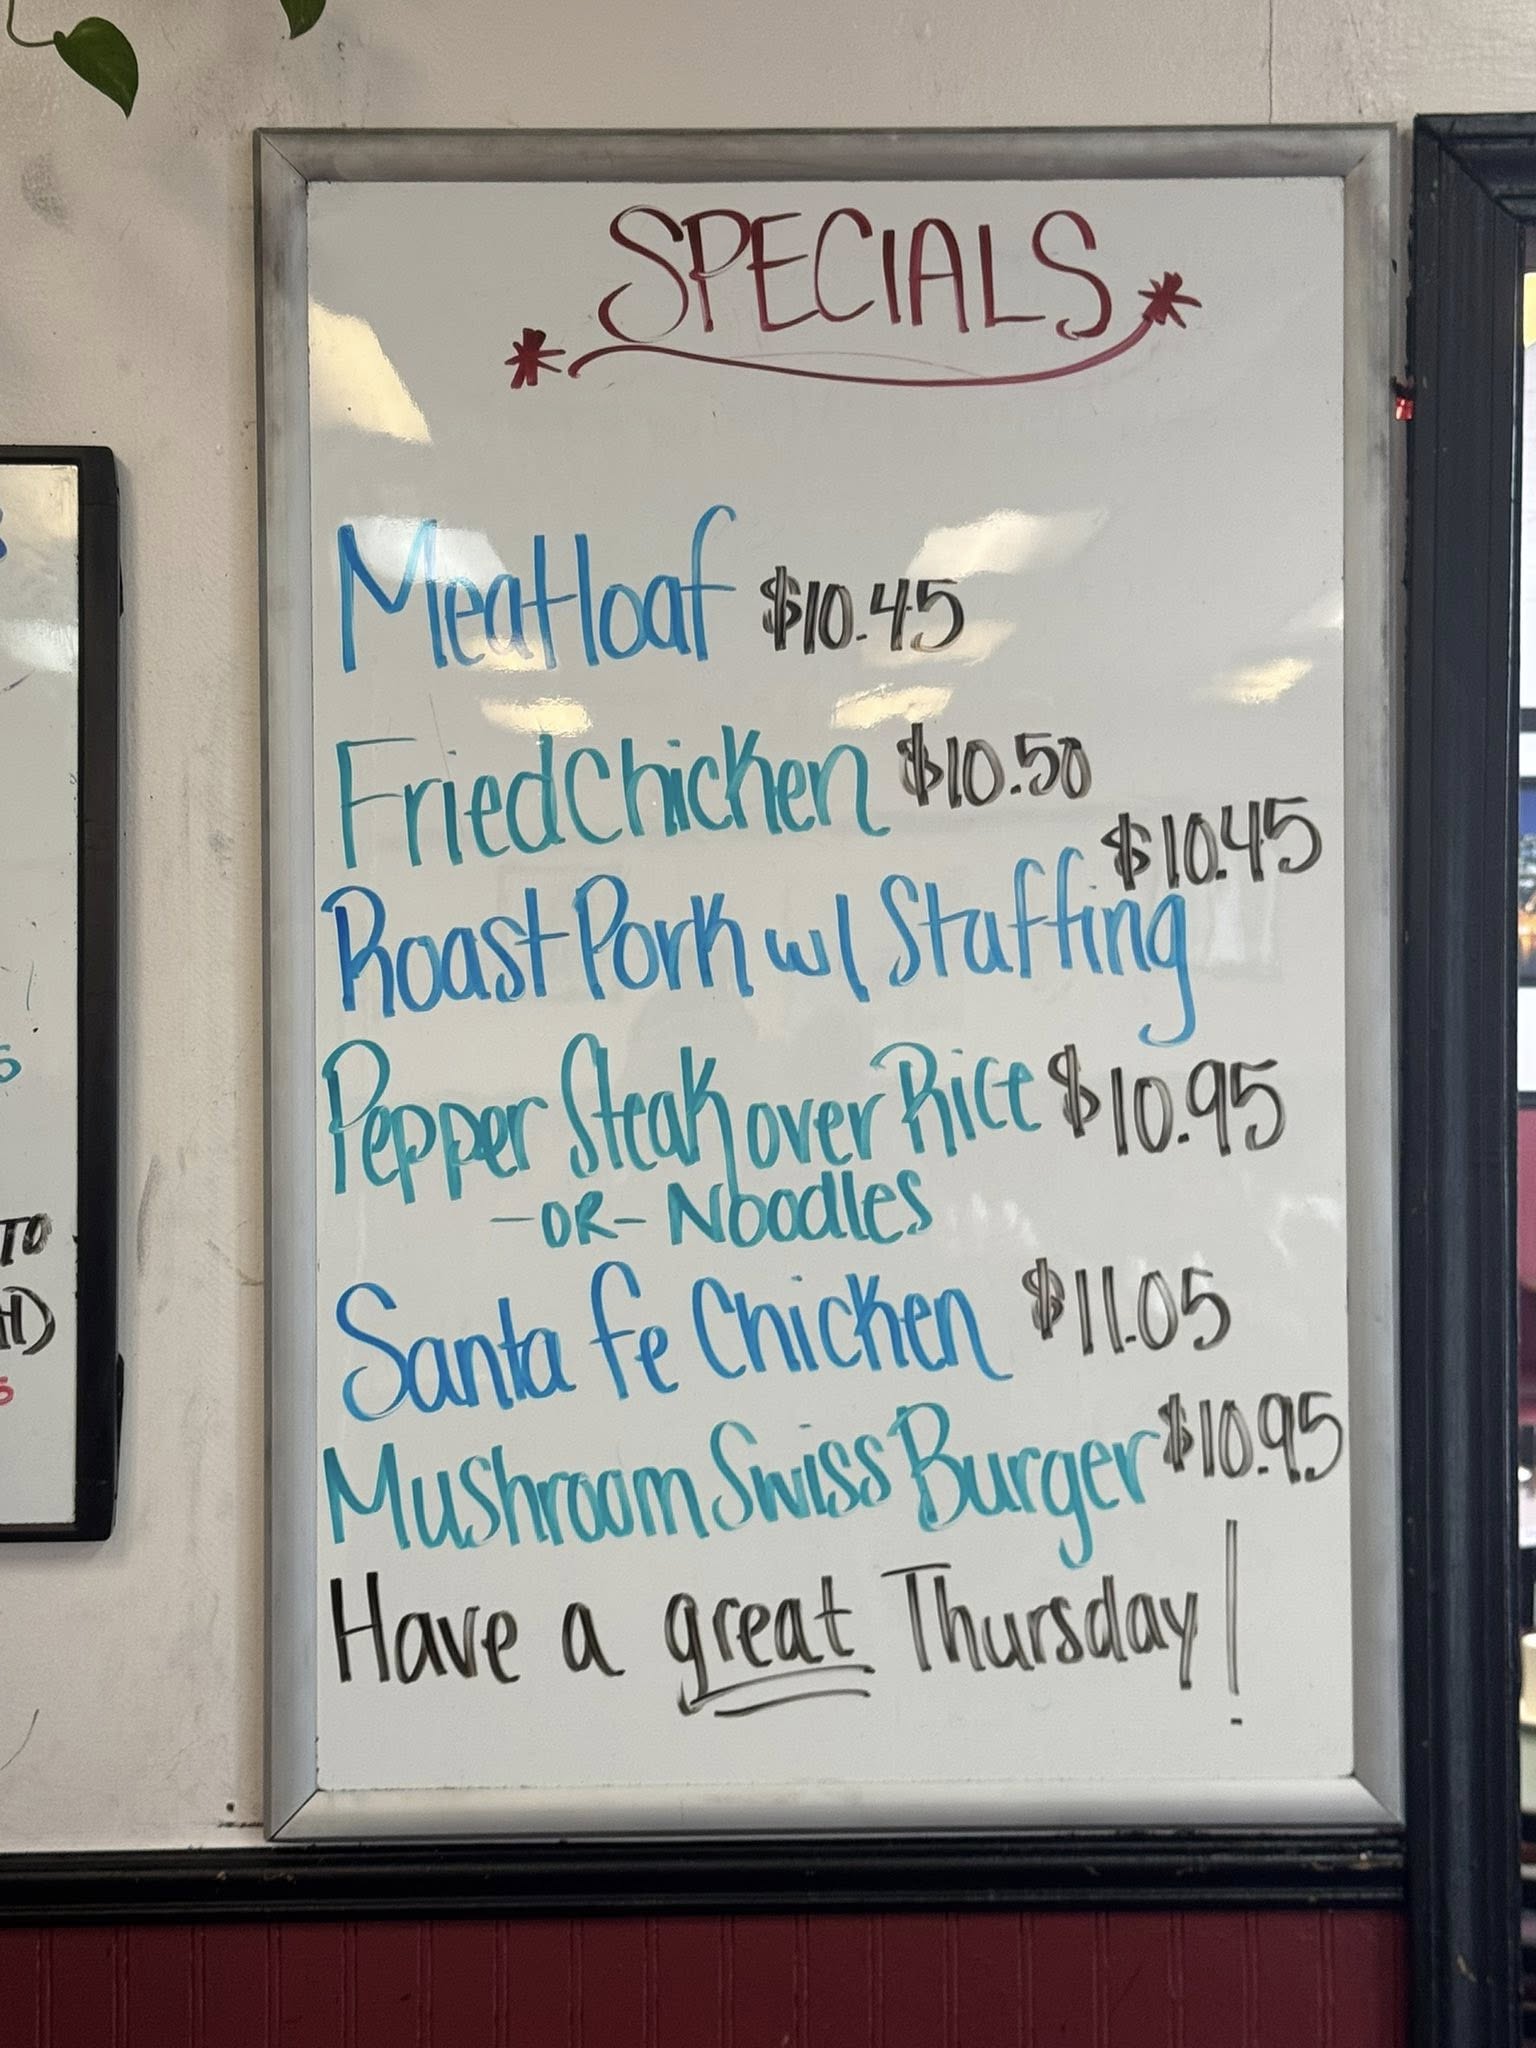 SPECIALS
Meatloaf $10.45
Fried Chicken $10.50
Roast Pork w/ Stuffing $10.45
Pepper Steak over Rice $10.95
-OR- Noodles
Santa Fe Chicken $11.05
Mushroom Swiss Burger $10.95
Have a great Thursday!
TO
H)